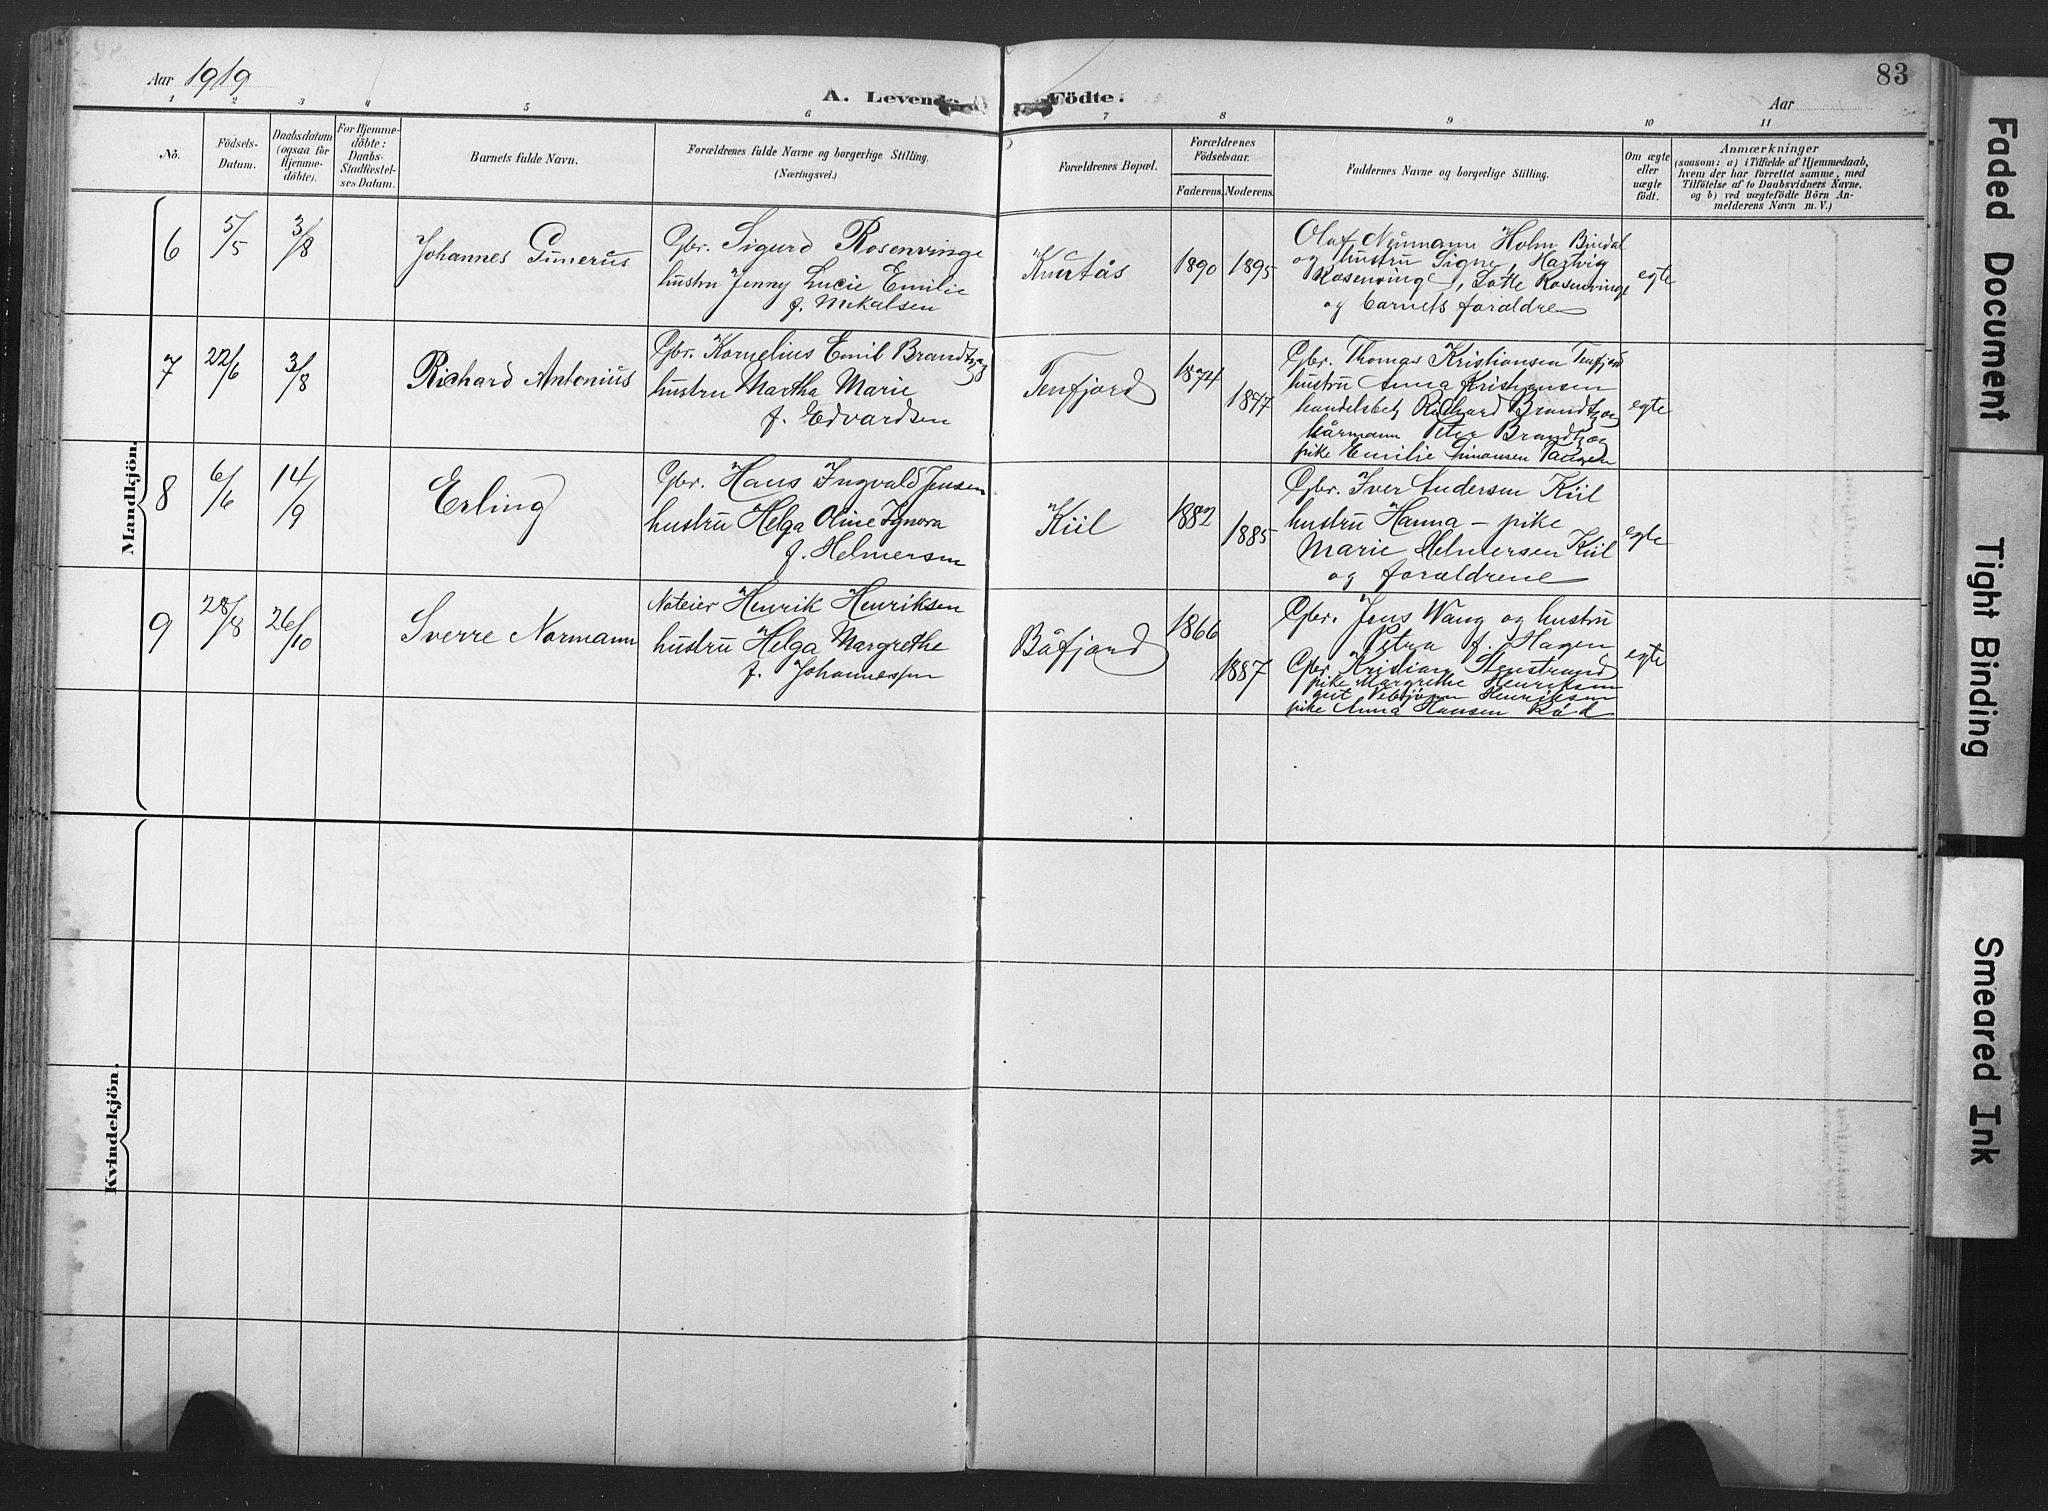 Aar 1919
A. Levende Födte.
Aar
83
1 2 3 4 5 6 7 8 9 10 11
No.
Födsels-Datum.
Daabsdatum (ogsaa for Hjemme-döbte).
For Hjemme-döbte: Daabs-Stadfæstel-ses Datum.
Barnets fulde Navn.
Forældrenes fulde Navne og borgerlige Stilling.
(Næringsvei.)
Forældrenes Bopæl.
Forældrenes Födselsaar.
Faderens. Moderens.
Faddernes Navne og borgerlige Stilling.
Om ægte eller uægte födt.
Anmærkninger
(saasom: a) i Tilfælde af Hjemmedaab,
hvem der har forrettet samme, med
Tilföielse af to Daabsvidners Navne,
og b) ved uægtefödte Börn An-
melderens Navn m. V.)
Mandkjön.
6 5/5 3/8 Johannes Gunerus
Gbr. Sigurd Rosenvinge
hustru Jenny Lucie Emilie
f. Mekalsen
1890 1895
Olaf Neumann Holm Bindal
og hustru Signe, Hartvig
Rosenvinge, Lotte Rosenvinge
og barnets forældre
egte
7 22/6 3/8 Richard Antonius
Gbr. Kornelius Emil Brandtzæg
hustru Martha Marie
f. Edvardsen
Tenfjord 1874 1877
Gbr. Thomas Kristiansen Tenfjord
hustru Anna Kristiansen
handelsbetj Richard Brandtzæg
Peter Brandtzæg
pike Emilie Simonsen
egte
8 6/6 14/9 Erling
Gbr. Hans Ingvald Jensen
hustru Helga Oline Ignora
f. Helmersen
Kiil 1882 1885
Gbr. Iver Andersen Kiil
hustru Hanna – pike
Marie Helmersen Kiil
og forældrene
egte
9 28/8 26/10 Sverre Normann
Noteier Henrik Henriksen
hustru Helga Margrethe
f. Johannessen
Båfjord 1866 1887
Gbr. Jens Wang og hustru
Petra f. Hagen
Gbr. Kristian Stenstrand
pike Margrethe Henriksen
gut Henriksen
pike Anna Hansen
egte
Kvindekjön.
Faded Document
Tight Binding
Smeared Ink